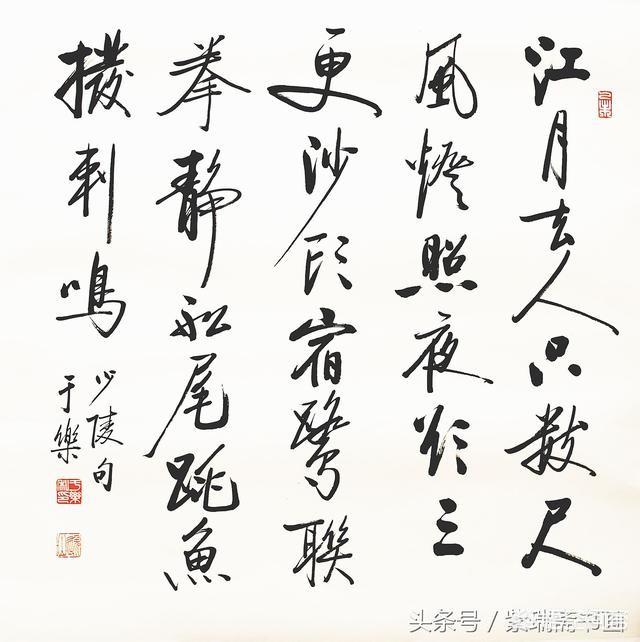 江月去人只数尺
風燈照夜欲三
更沙头宿鷺聯
拳靜船尾跳魚
撥刺鳴
少陵句
于樂
头条号/紫瑞斋书画